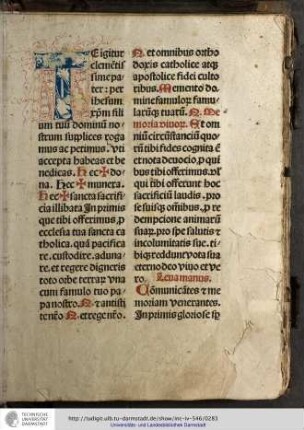 TE igitur
clemētissi
sime pa
ter: per
ihesum
xp̄m fili
um tuū dominū no
strum supplices roga
mus ac petimus. vti
accepta habeas et be
nedicas. hec ✠ do
na. Hec ✠ munera.
Hec ✠ sancta sacrifi
cia illibata In primis
que tibi offerimus. p̄
ecclesia tua sancta ca
tholica. quā pacifica
re. custodire. aduna
re. et regere digneris
toto orbe terrarꝝ vna
cum famulo tuo pa
pa nostro. N. et antisti
te nr̄o N. et rege nr̄o.
N. et omnibus ortho
doxis catholice atqꝫ
apostolice fidei culto
ribus. Memento do
mine famulorꝝ famu
larūqꝫ tuarū. N. Me
moria viuorꝝ. Et om
niū circūstanciū quo
rū tibi fides cognita ē
et nota deuocio. p̄ qui
bus tibi offerimus. vl̄
qui tibi offerunt hoc
sacrificiū laudis. pro
se suisqꝫ om̄ibus. p̄ re
dempcione animarū
suarꝝ. pro spe salutis ⁊
incolumitatis sue. ti
biqꝫ reddunt vota sua
eterno deo viuo et ve
ro. Leua manus.
Cōmunicātes ⁊ me
moriam venerantes.
In primis gloriose sp̄
TECHNISCHE
UNIVERSITÄT
DARMSTADT
http://tudigit.ulb.tu-darmstadt.de/show/inc-iv-546/0283
Universitäts- und Landesbibliothek Darmstadt